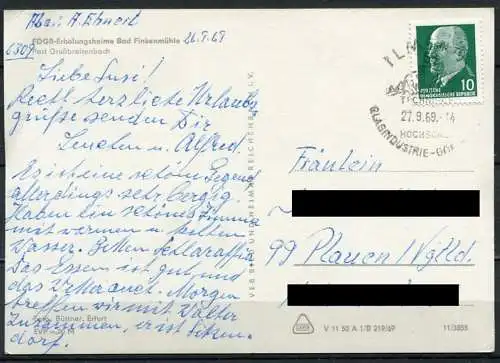 Abs: A. Ehnert
6804
26.9.69
FDGB-Erholungsheime Bad Finkenmühle
Bad Großbreitenbach
Liebe Susi!
Recht herzliche Urlaubs
grüße senden Dir
Lenchen und Alfred.
Es ist eine schöne Gegend
allerdings sehr bergig.
Haben ein schönes Zimmer
mit warmen u. kalten
Wasser. Betten Schlaraffia
Das Essen ist gut und
das Wetter auch. Morgen
treffen wir mit Walter
zusammen, erst Sitzen-
dorf.
Foto: Büttner, Erfurt
VEB BILD UND HEIMAT REICHENBACH I. V.
DEUTSCHE
DEMOKRATISCHE REPUBLIK
10
ILM
27.9.69.-14
HOCHSC
GLASINDUSTRIE
Fräulein
99 Plauen i/Vgtld.
V 11 50 A 1/B 219/69
11/3855